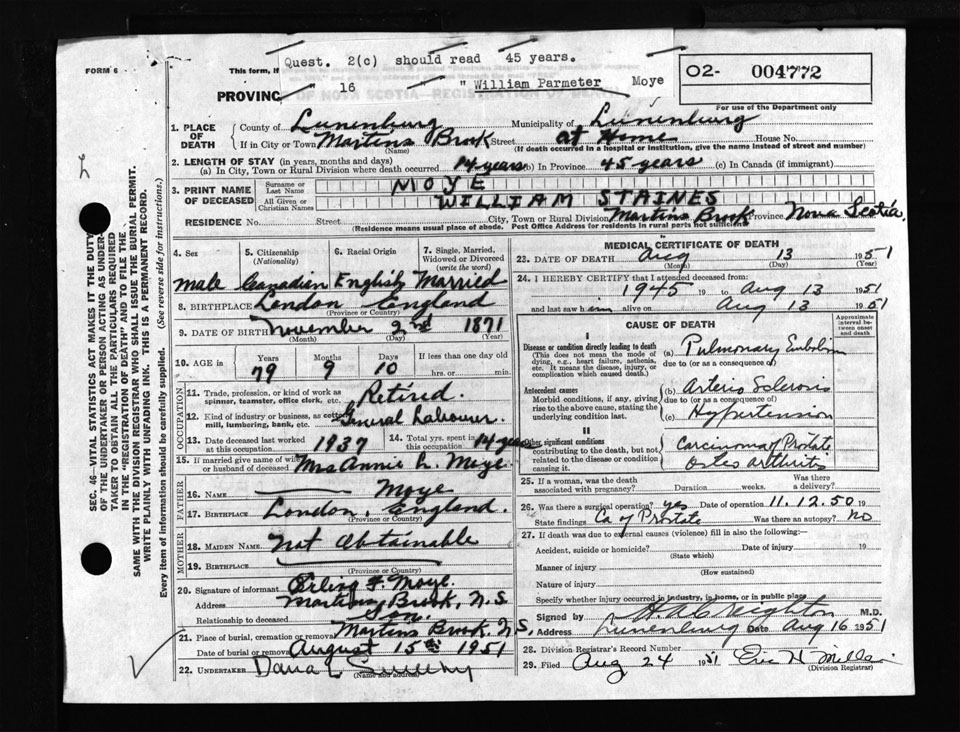 Quest. 2(c) should read 45 years.
" 16 " William Parmeter Moye
FORM 6
This form, if
O2- 004772
For use of the Department only
PROVINCE OF NOVA SCOTIA—REGISTRATION OF DEATH
1. PLACE OF DEATH
County of Lunenburg Municipality of Lunenburg
If in City or Town Martins Brook Street at Home House No.
(Name) (If death occurred in a hospital or institution, give the name instead of street and number)
2. LENGTH OF STAY (in years, months and days)
(a) In City, Town or Rural Division where death occurred 14 years (b) In Province 45 years (c) In Canada (if immigrant)
3. PRINT NAME OF DECEASED
Surname or Last Name MOYE
All Given or Christian Names WILLIAM STAINES
RESIDENCE No. Street City, Town or Rural Division Martins Brook Province Nova Scotia.
(Residence means usual place of abode. Post Office Address for residents in rural parts not sufficient)
4. Sex 5. Citizenship (Nationality) 6. Racial Origin 7. Single, Married, Widowed or Divorced (write the word)
male Canadian English Married
8. BIRTHPLACE London England
(Province or Country)
9. DATE OF BIRTH November 2nd 1871
(Month) (Day) (Year)
10. AGE in Years Months Days If less than one day old
79 9 10 hrs. or min.
OCCUPATION
11. Trade, profession or kind of work as spinner, teamster, office clerk, etc. Retired.
12. Kind of industry or business, as cotton mill, lumbering, bank, etc. General Labourer.
13. Date deceased last worked at this occupation 1937 14. Total yrs. spent in this occupation 14 years
15. If married give name of wife or husband of deceased Mrs Annie L. Moye.
FATHER
16. NAME Moye
17. BIRTHPLACE London, England.
(Province or Country)
MOTHER
18. MAIDEN NAME Not Obtainable
19. BIRTHPLACE
(Province or Country)
20. Signature of informant F. Moye.
Address Martins Brook, N.S.
Relationship to deceased Son.
21. Place of burial, cremation or removal Martins Brook N.S.
Date of burial or removal August 15th 1951
22. UNDERTAKER Dana L Sweeny
(Name and address)
MEDICAL CERTIFICATE OF DEATH
23. DATE OF DEATH Aug 13 1951
(Month) (Day) (Year)
24. I HEREBY CERTIFY that I attended deceased from:
1945 19 to Aug 13 1951
and last saw him alive on Aug 13 1951
CAUSE OF DEATH
Approximate interval between onset and death
I
Disease or condition directly leading to death (a) Pulmonary Embolism
(This does not mean the mode of dying, e.g., heart failure, asthenia, etc. It means the disease, injury, or complication which caused death.)
due to (or as a consequence of)
Antecedent causes (b) Arterio Sclerosis
Morbid conditions, if any, giving rise to the above cause, stating the underlying condition last.
due to (or as a consequence of)
(c) Hypertension
II
Other significant conditions contributing to the death, but not related to the disease or condition causing it.
Carcinoma of Prostate
Osteo arthritis
25. If a woman, was the death associated with pregnancy? Duration weeks. Was there a delivery?
26. Was there a surgical operation? yes Date of operation 11.12.50 19
State findings Ca of Prostate Was there an autopsy? no
27. If death was due to external causes (violence) fill in also the following:—
Accident, suicide or homicide? Date of injury 19
(State which)
Manner of injury
(How sustained)
Nature of injury
Specify whether injury occurred in industry, in home, or in public place
Signed by H A Creighton M.D.
Address Lunenburg Date Aug 16 1951
28. Division Registrar's Record Number
29. Filed Aug 24 1951 Eric H. Miller
(Division Registrar)
SEC. 46—VITAL STATISTICS ACT MAKES IT THE DUTY
OF THE UNDERTAKER OR PERSON ACTING AS UNDER-
TAKER TO OBTAIN ALL THE PARTICULARS REQUIRED
IN THE "REGISTRATION OF DEATH" AND TO FILE THE
SAME WITH THE DIVISION REGISTRAR WHO SHALL ISSUE THE BURIAL PERMIT.
WRITE PLAINLY WITH UNFADING INK. THIS IS A PERMANENT RECORD.
Every item of information should be carefully supplied. (See reverse side for instructions.)